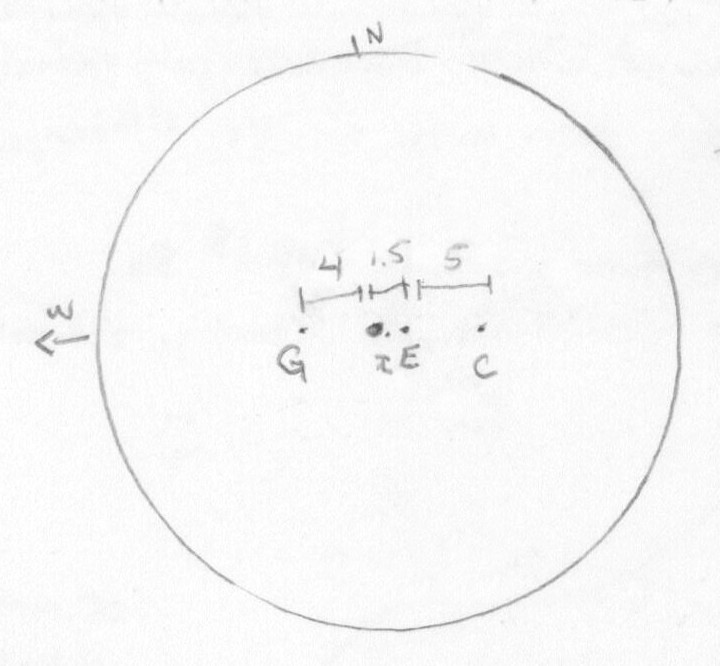 N
4 1.5 5
W
G I E C